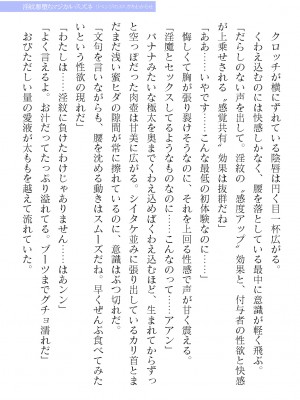 クロッチが横にずれている陰唇は円く目一杯広がる。
くわえ込むのには快感しかなく、腰を落としている最中に意識が軽く飛ぶ。
「だらしのない声を出して。淫紋の〝感度アップ〟効果と、付与者の性欲と快感
が上乗せされる〝感覚共有〟効果は抜群だね」
「ああ……いやです……こんな最低の初体験なのに……」
悔しくて胸が張り裂けそうなのに、それを上回る性感で声が甘く震える。
「淫魔とセックスしてるようなものなのに……こんなのって……アアン」
バナナみたいな極太をあくまでくわえ込めばくわえ込むほど、生まれてからずっ
と空っぽだった肉壺は甘美に広がる。シイタケ並みに張り出しているカリ首とま
だまだ浅い蜜ヒダの隙間が常に擦れているのに、意識はぶつ切れだ。
「文句を言いながらも、腰を沈める動きはスムーズだね。早くぜんぶ食べてみた
いという性欲の現れだ」
「わたしは……淫紋に負けたわけじゃありません……はあン」
「よく言えるよ。お汁だってたっぷり溢れてる。ブーツまでグチョ濡れだ」
おびただしい量の愛液が太ももを越えて流れていた。